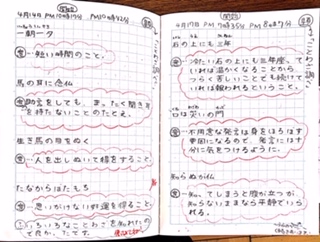 開始
4月14日 PM10時19分 PM10時42分
一朝一夕
意…短い時間のこと。
馬の耳に念仏
意…助言をしても、まったく聞き耳
を持たないことのたとえ。
生き馬の目をぬく
意…人を出しぬいて得をすること。
たなからぼたもち
意…思いがけない好運を得ること。
いろいろなことわざを知れたの
でよかったです。
開始
4月17日 PM7時35分 PM8時7分
石の上にも三年
意…冷たい石の上にも三年座っ
ていれば温かくなることから
つらく苦しいことでも続けて
いれば報われるということ。
口は災いの門
意…不用意な発言は身をほろぼす
要因になるので、発言には十
分に気をつけるように。
知らぬが仏
意…知ってしまうと腹が立つが、
知らないままなら平静でいら
れる。